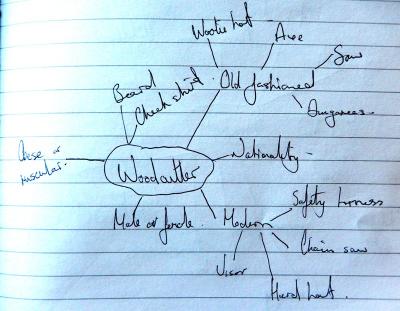 Woolie hat
Axe
Saw
Old fashioned
Dungarees.
Beard
Check shirt
Obese or
muscular.
Woodcutter
Nationality
Male or female.
Modern
Safety harness
Chain saw
Visor
Hard hat.